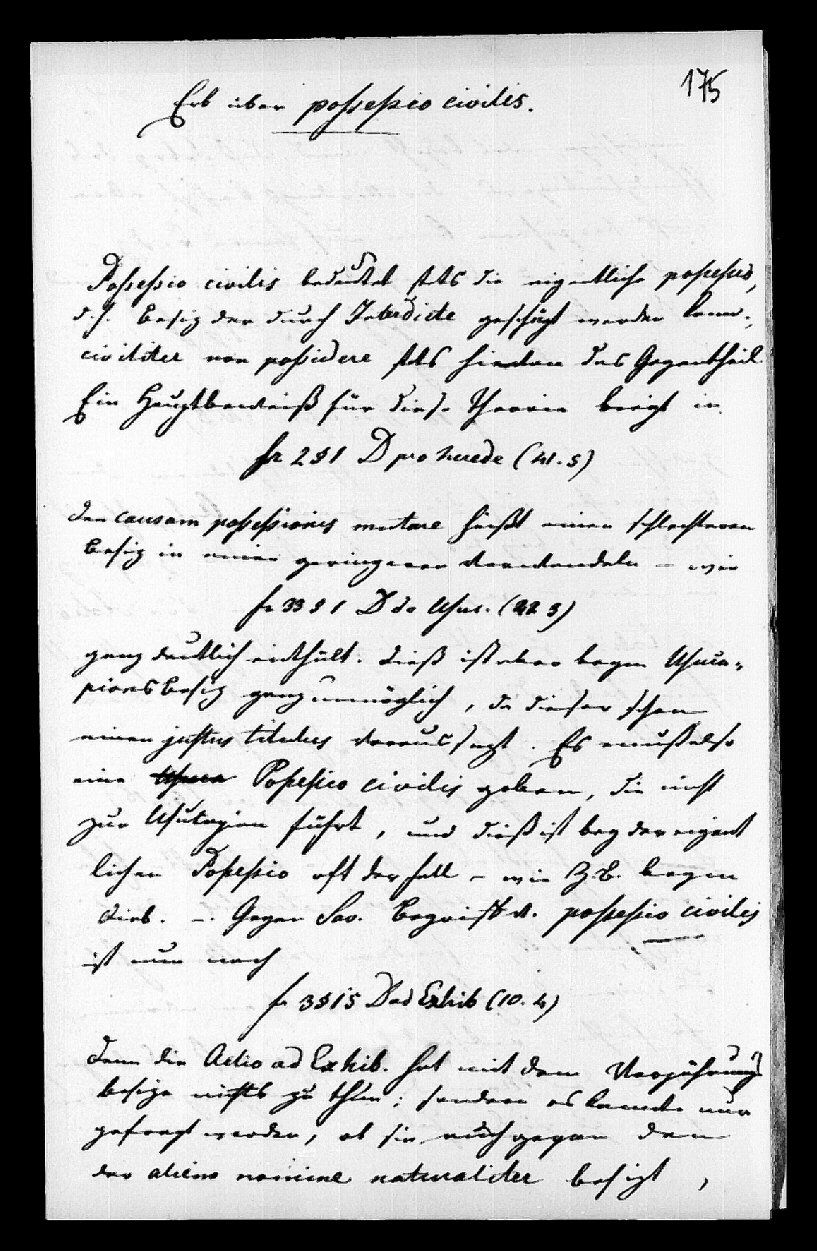 175
Erb über possessio civilis.
Possessio civilis bedeutet stets die eigentliche possessio,
d. h. Besiz der durch Interdicte geschüzt werden kann.,
civiliter non possidere stets hievon das Gegentheil.
Ein Hauptbeweiß für diese Theorie liegt in
fr 2 § 1 D pro herede (41. 5)
den causam possessionis mutare heißt einen schlechteren
Besiz in einen geringeren verwandeln – wie
fr 33 § 1 D de Usuc. (41 3)
ganz deutlich enthält. Dieß ist aber beym Usuca-
pionsbesiz ganz unmöglich, da dieser schon
einen justus titulus voraussezt. Es muß also
eine Possessio civilis geben, die nicht
zur Usucapion führt, und dieß ist bey der eigent
lichen Possessio oft der Fall – wie z.B. beym
Dieb. – Gegen Sav. Begriff d. possessio civilis
ist nun noch
fr 3 § 15 D ad Exhib (10. 4)
Denn die Actio ad Exhib. hat mit dem Verjährungs
besize nichts zu thun; sondern es konnte nur
gefragt werden, ob sie auch gegen den
der alieno nomine naturaliter besizt,